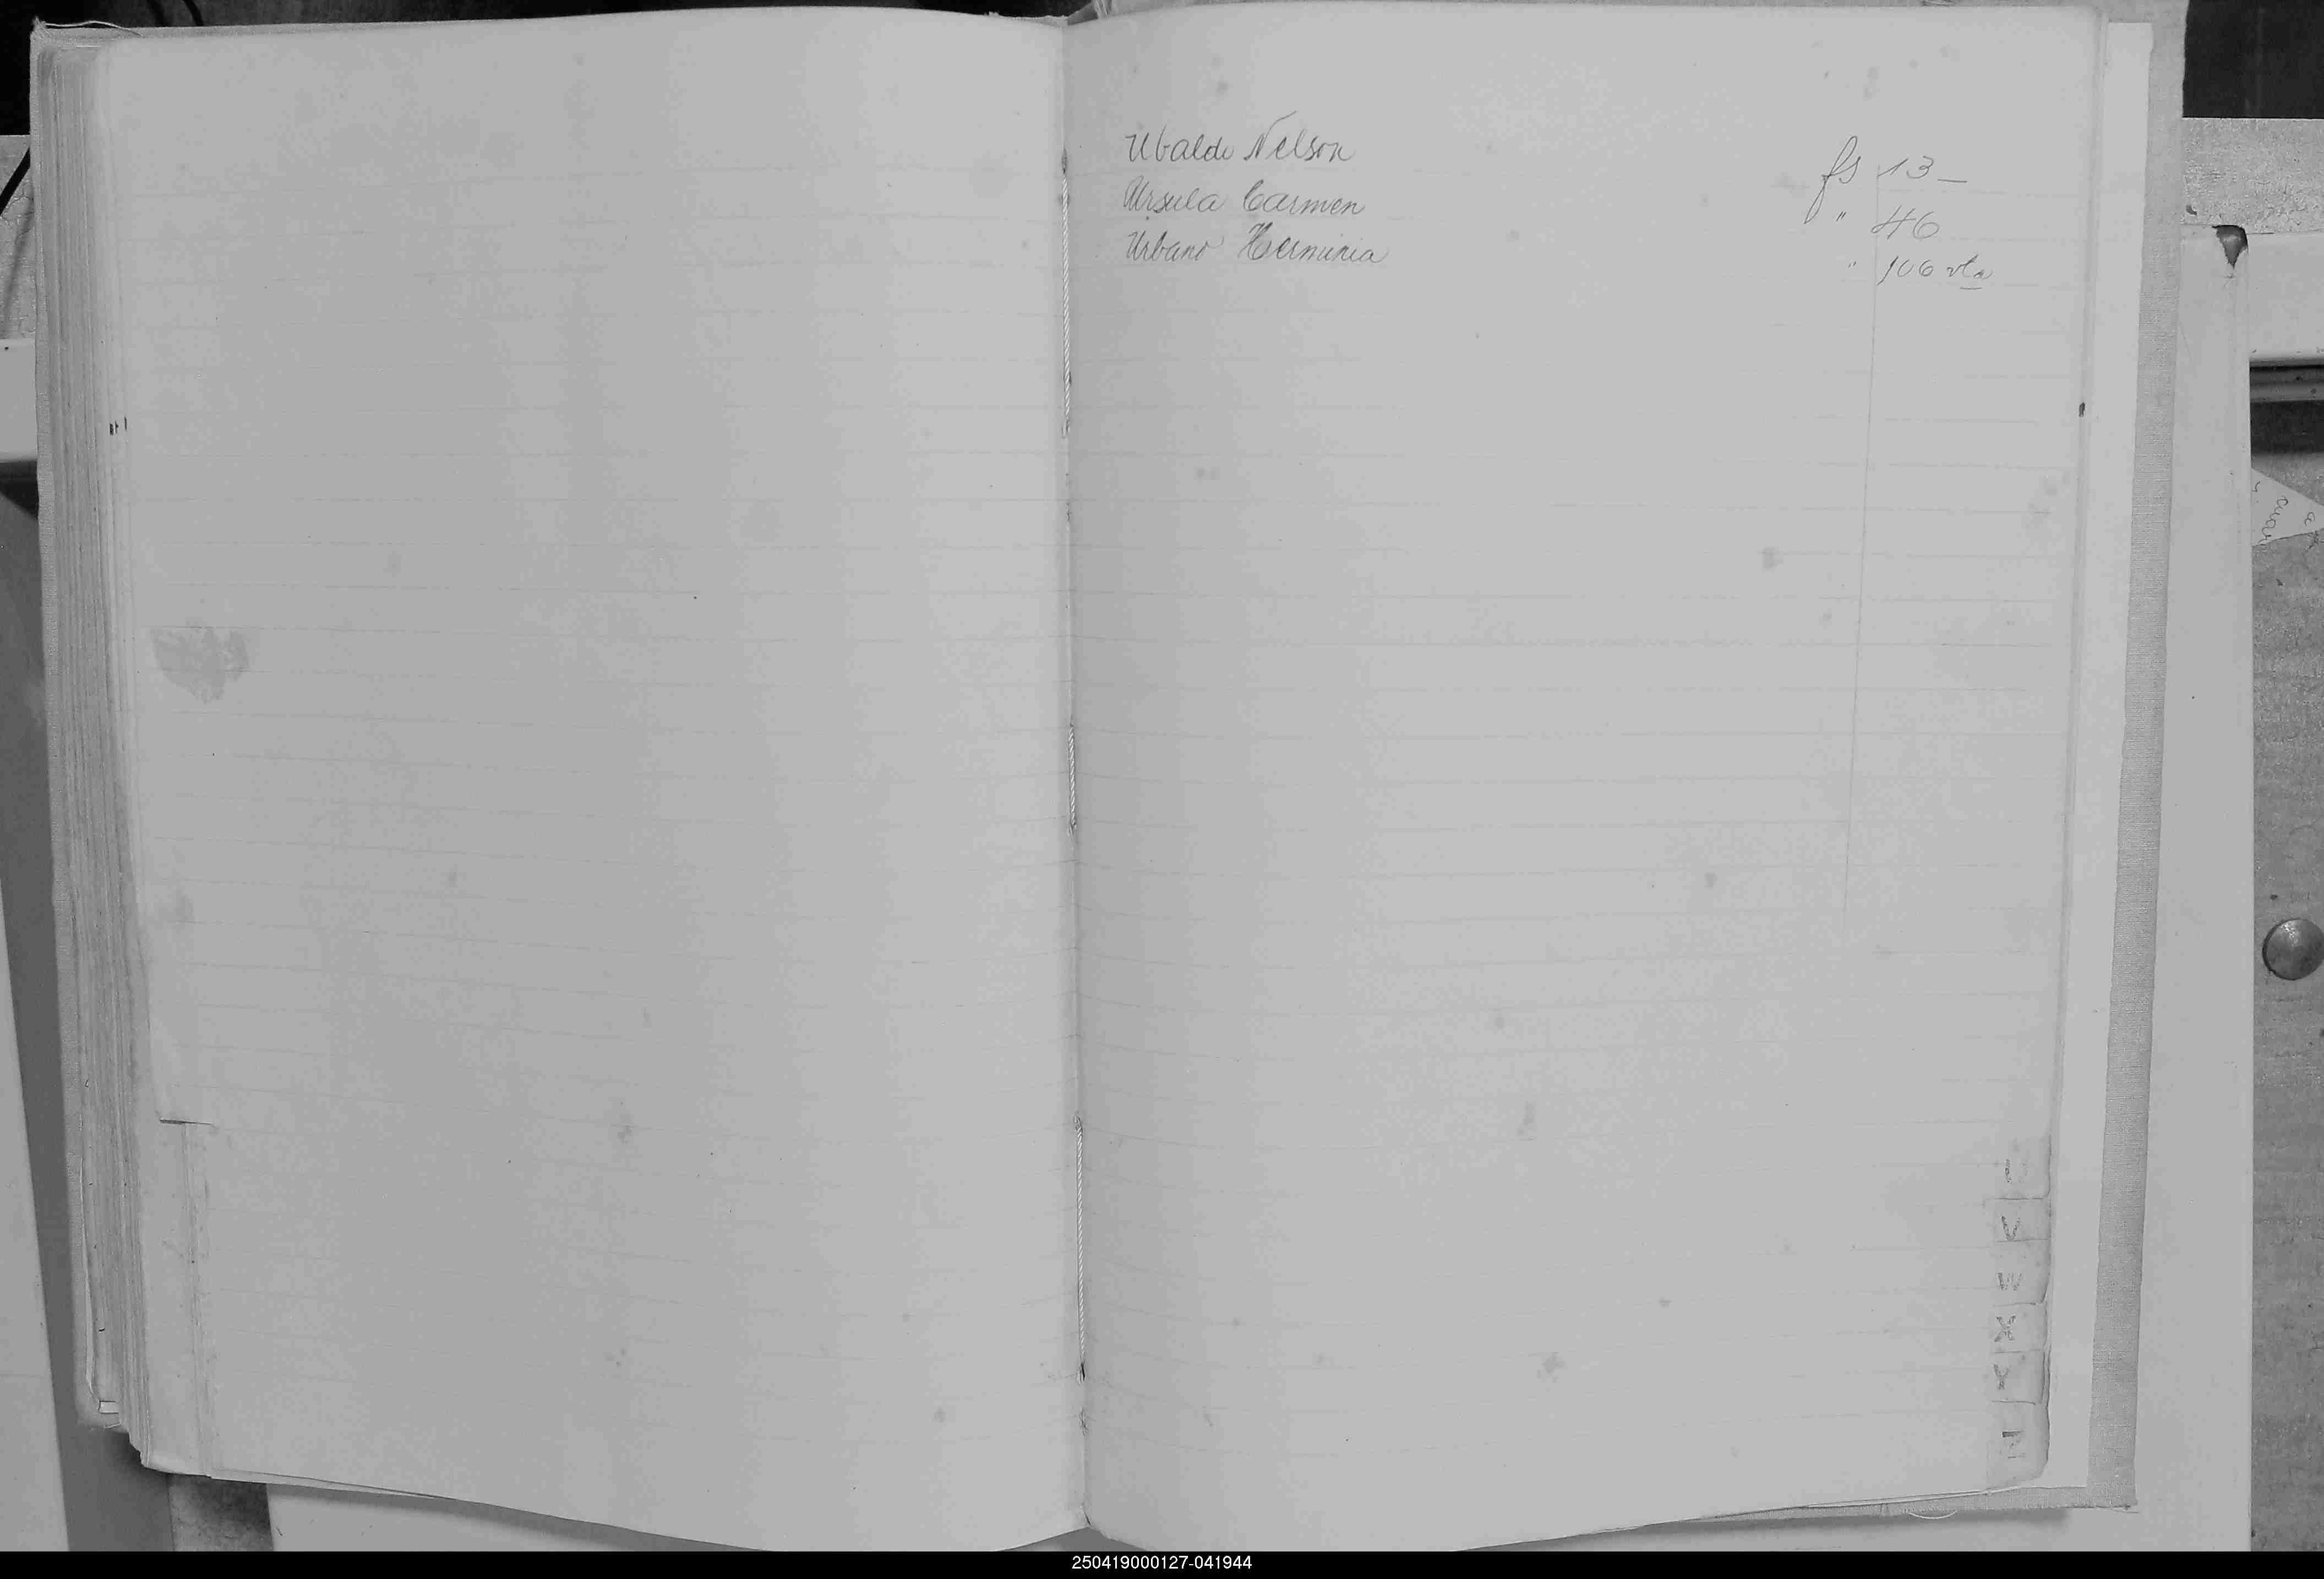 Ubaldo Nelson fs 13-
Ursula Carmen " 46
Urbano Herminia " 106 vta
U
V
W
X
Y
Z
250419000127-041944